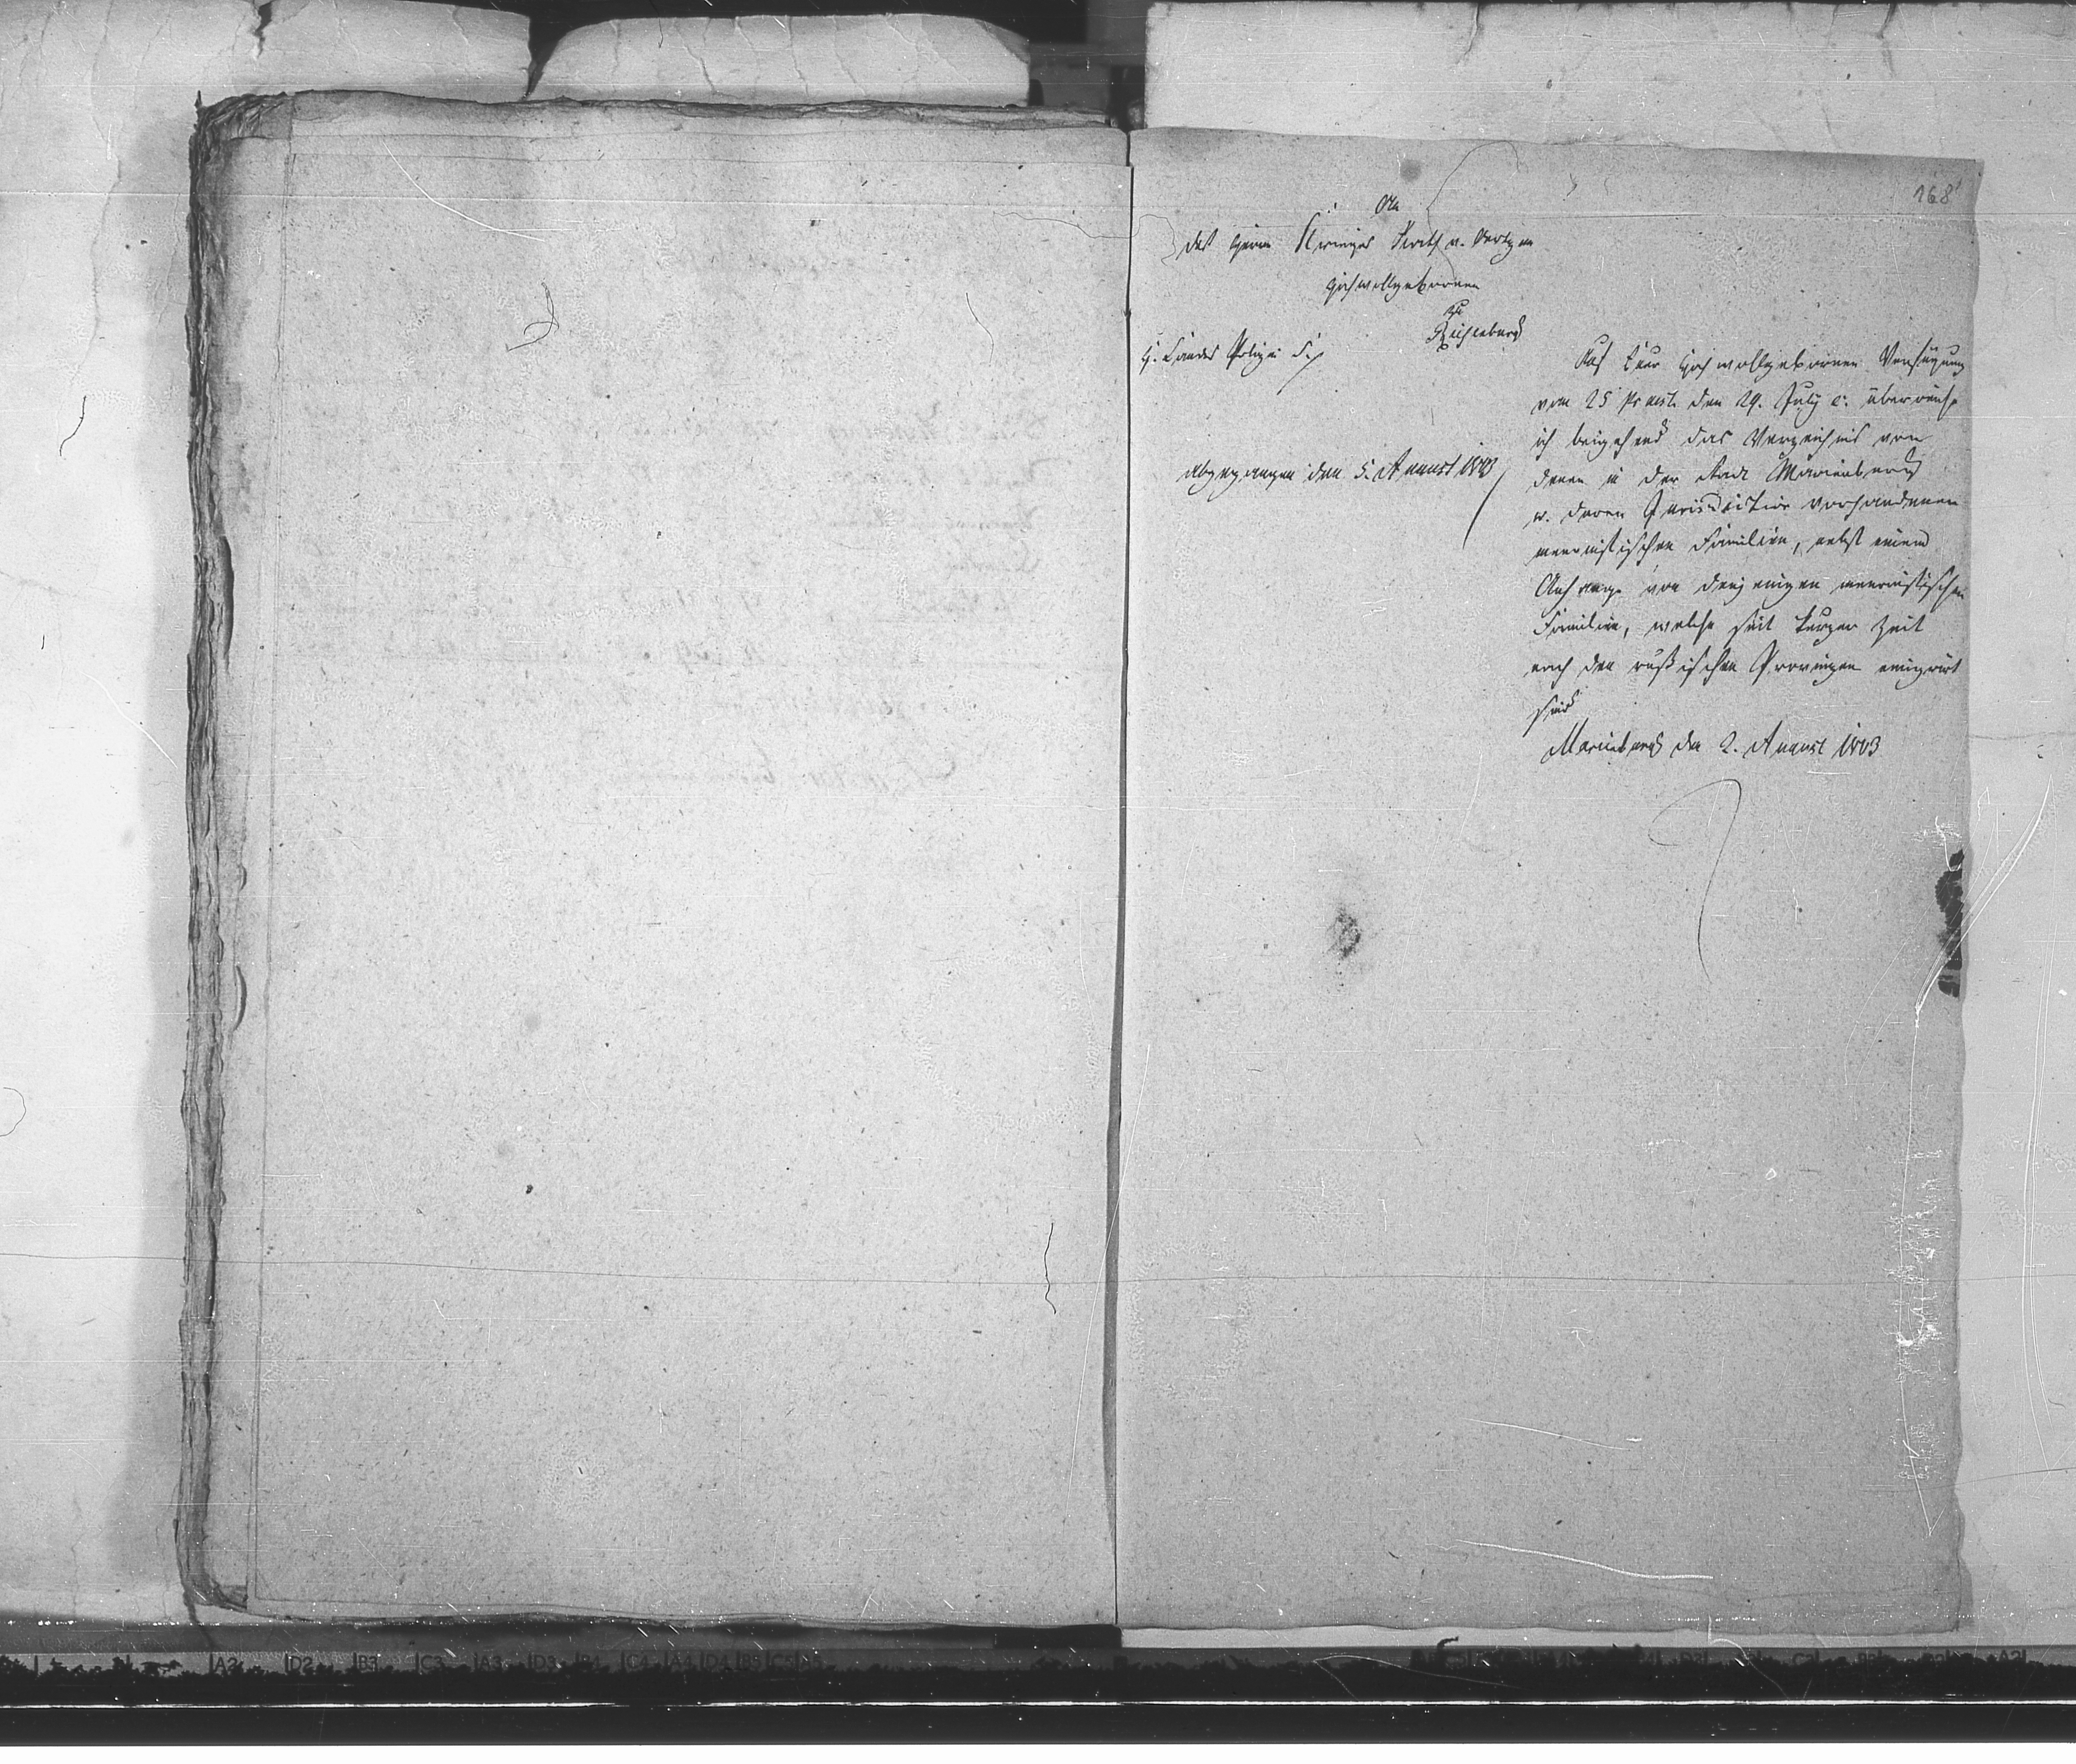 168
An
des Herrn Krieges Rath v. Oertzen
Hochwollgebornen
zu
Riesenburg
H. Landes Polizei S.
abgegangen den 5. August 1803
Auf Euer Hochwollgebornen Verfügung
vom 25 Praest. den 29. July c. überreiche
ich beigehend das Verzeichnis von
denen in der Stadt Marienburg
u. deren Jurisdiction vorhandenen
mennistischen Familien, nebst einem
Anhange von denjenigen mennistischen
Familien, welche seit kurzer Zeit
nach den russischen Provinzen emigrirt
sind
Marienburg den 2. August 1803